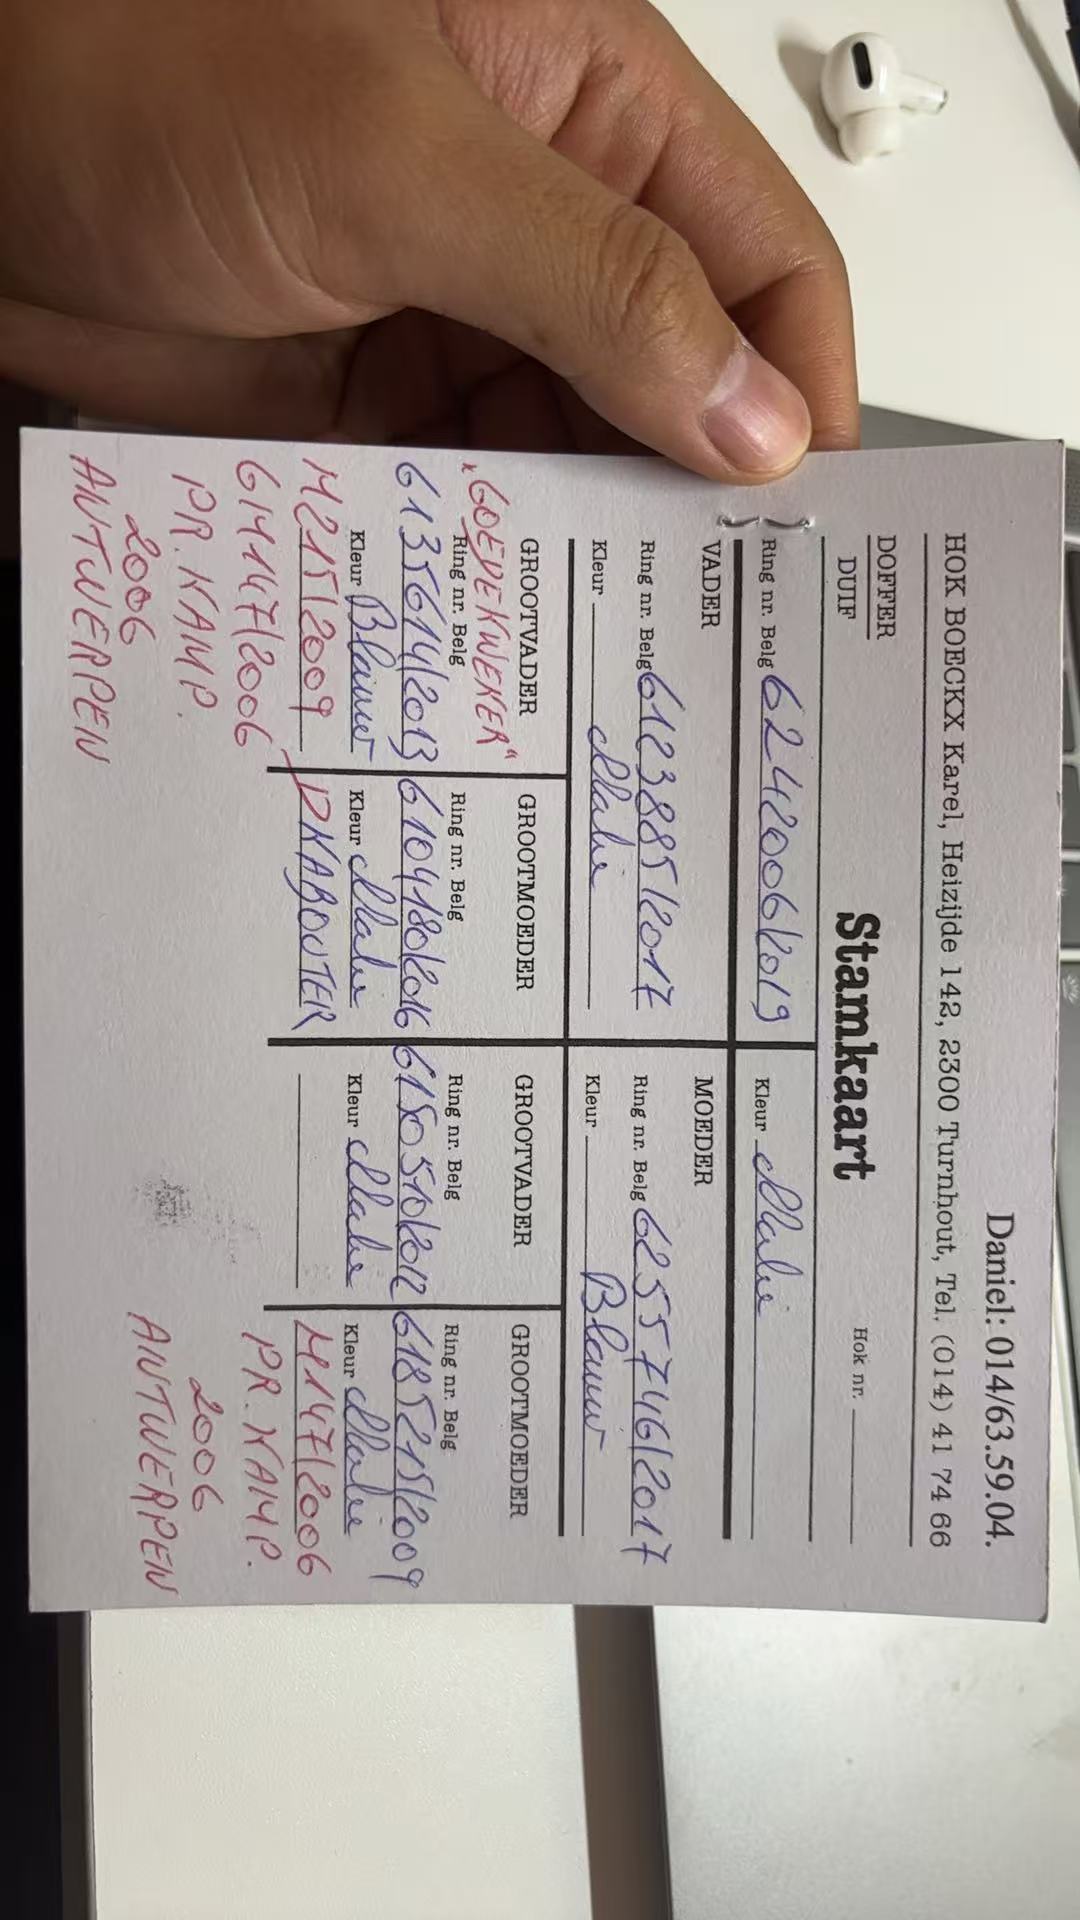 Daniel: 014/63.59.04.
HOK BOECKX Karel, Heizijde 142, 2300 Turnhout, Tel. (014) 41 74 66
DOFFER
DUIF
Stamkaart
Hok nr.
Ring nr. Belg 6242006/2019
Kleur
VADER
MOEDER
Ring nr. Belg 6123885/2017
Ring nr. Belg 6255746/2017
Kleur
Kleur Blauw
GROOTVADER
GROOTMOEDER
GROOTVADER
GROOTMOEDER
"GOEDE KWEKER"
Ring nr. Belg
Ring nr. Belg
Ring nr. Belg
Ring nr. Belg
6135614/2013
6104180/2016
6150510/2012
6185215/2009
Kleur Blauw
Kleur
Kleur
Kleur
M215/2009
KABOUTER
M147/2006
6141147/2006
PR. KAMP.
PR. KAMP.
2006
2006
ANTWERPEN
ANTWERPEN